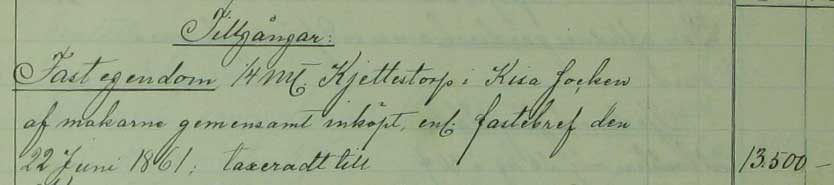 Tillgångar:
Fast egendom 1/4 mtl Kjettestorp i Kisa socken
af makarne gemensamt inköpt, enl. fastebref den
22 Juni 1861; taxeradt till 13.500 –